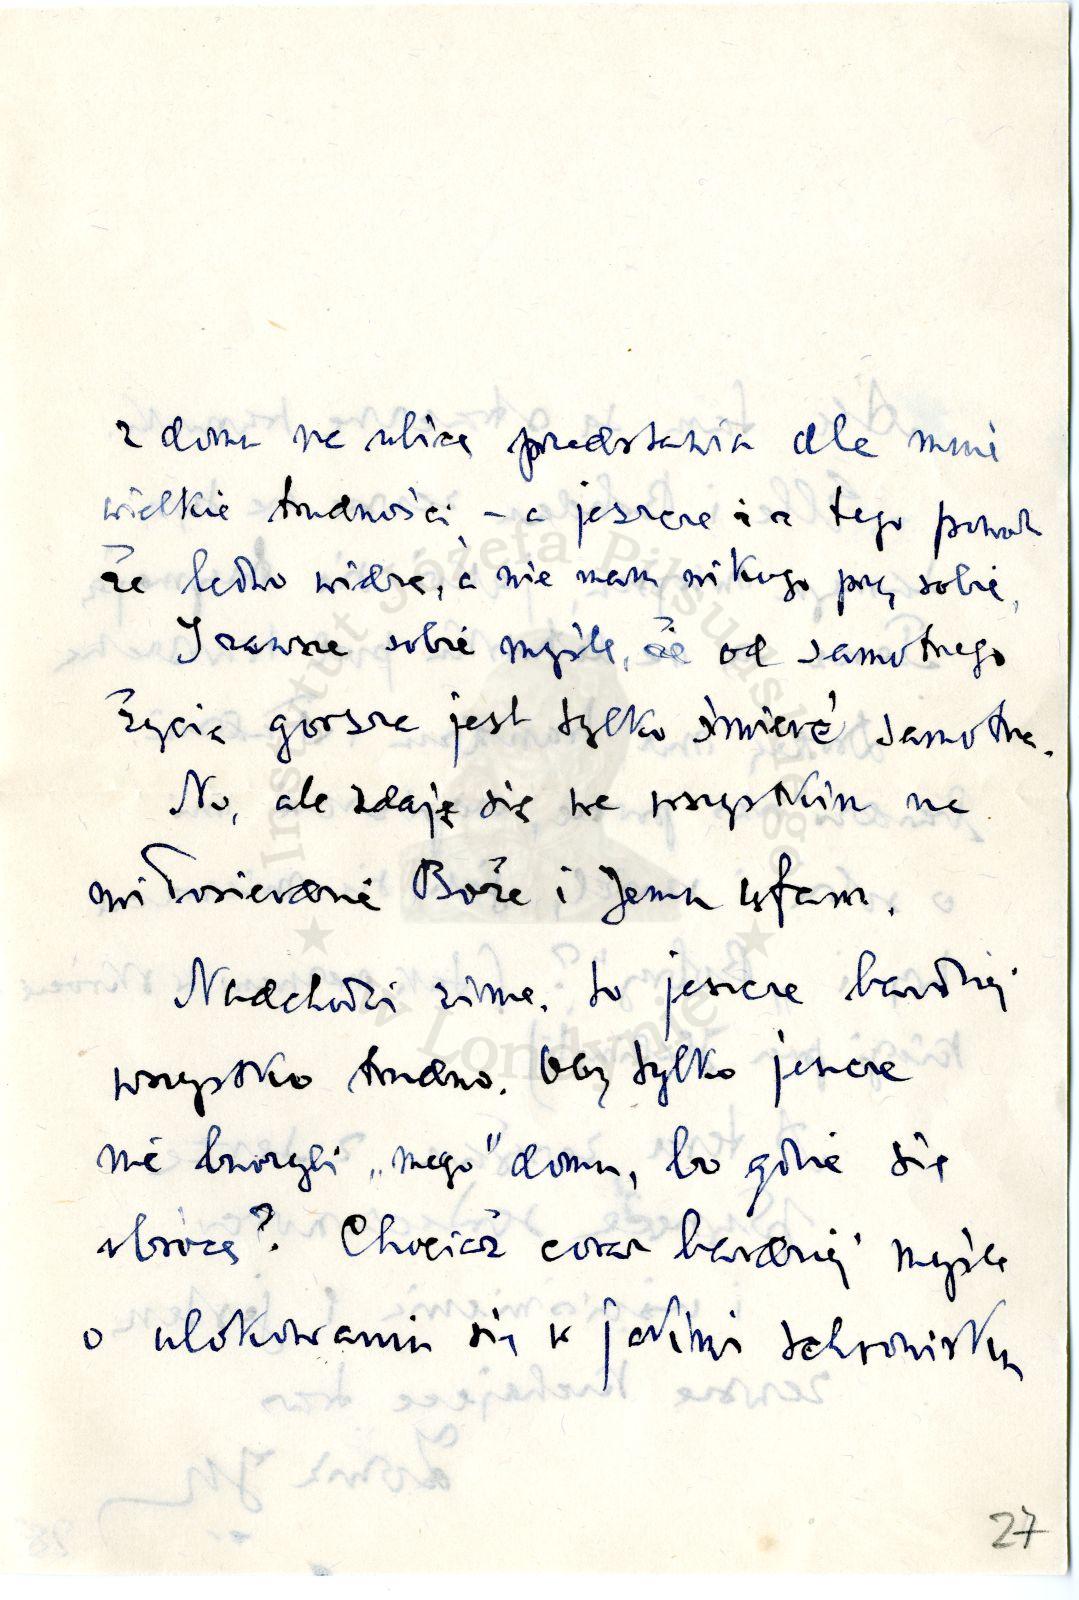 z domu na ulicę przedstawia dla mnie
wielkie trudności – a jeszcze i z tego powodu
że ledwo widzę, a nie mam nikogo przy sobie.
I zawsze sobie myślę, że od samotnego
życia gorsza jest tylko śmierć samotna.
No, ale zdaję się we wszystkim na
miłosierdzie Boże i Jemu ufam.
Nadchodzi zima, to jeszcze bardziej
wszystko trudno. Oby tylko jeszcze
nie burzyli „mego" domu, bo gdzie się
obrócę? Chociaż coraz bardziej myślę
o ulokowaniu się w jakimś schronisku
27
Instytut Józefa Piłsudskiego w Londynie